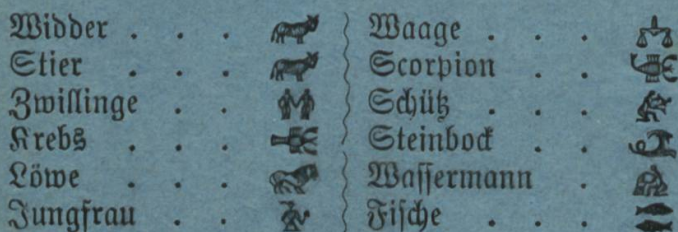 Widder . . .
Stier . . .
Zwillinge . .
Krebs . . .
Löwe . . .
Jungfrau . .
Waage . . .
Scorpion . .
Schütz . . .
Steinbock . .
Wassermann .
Fische . . .